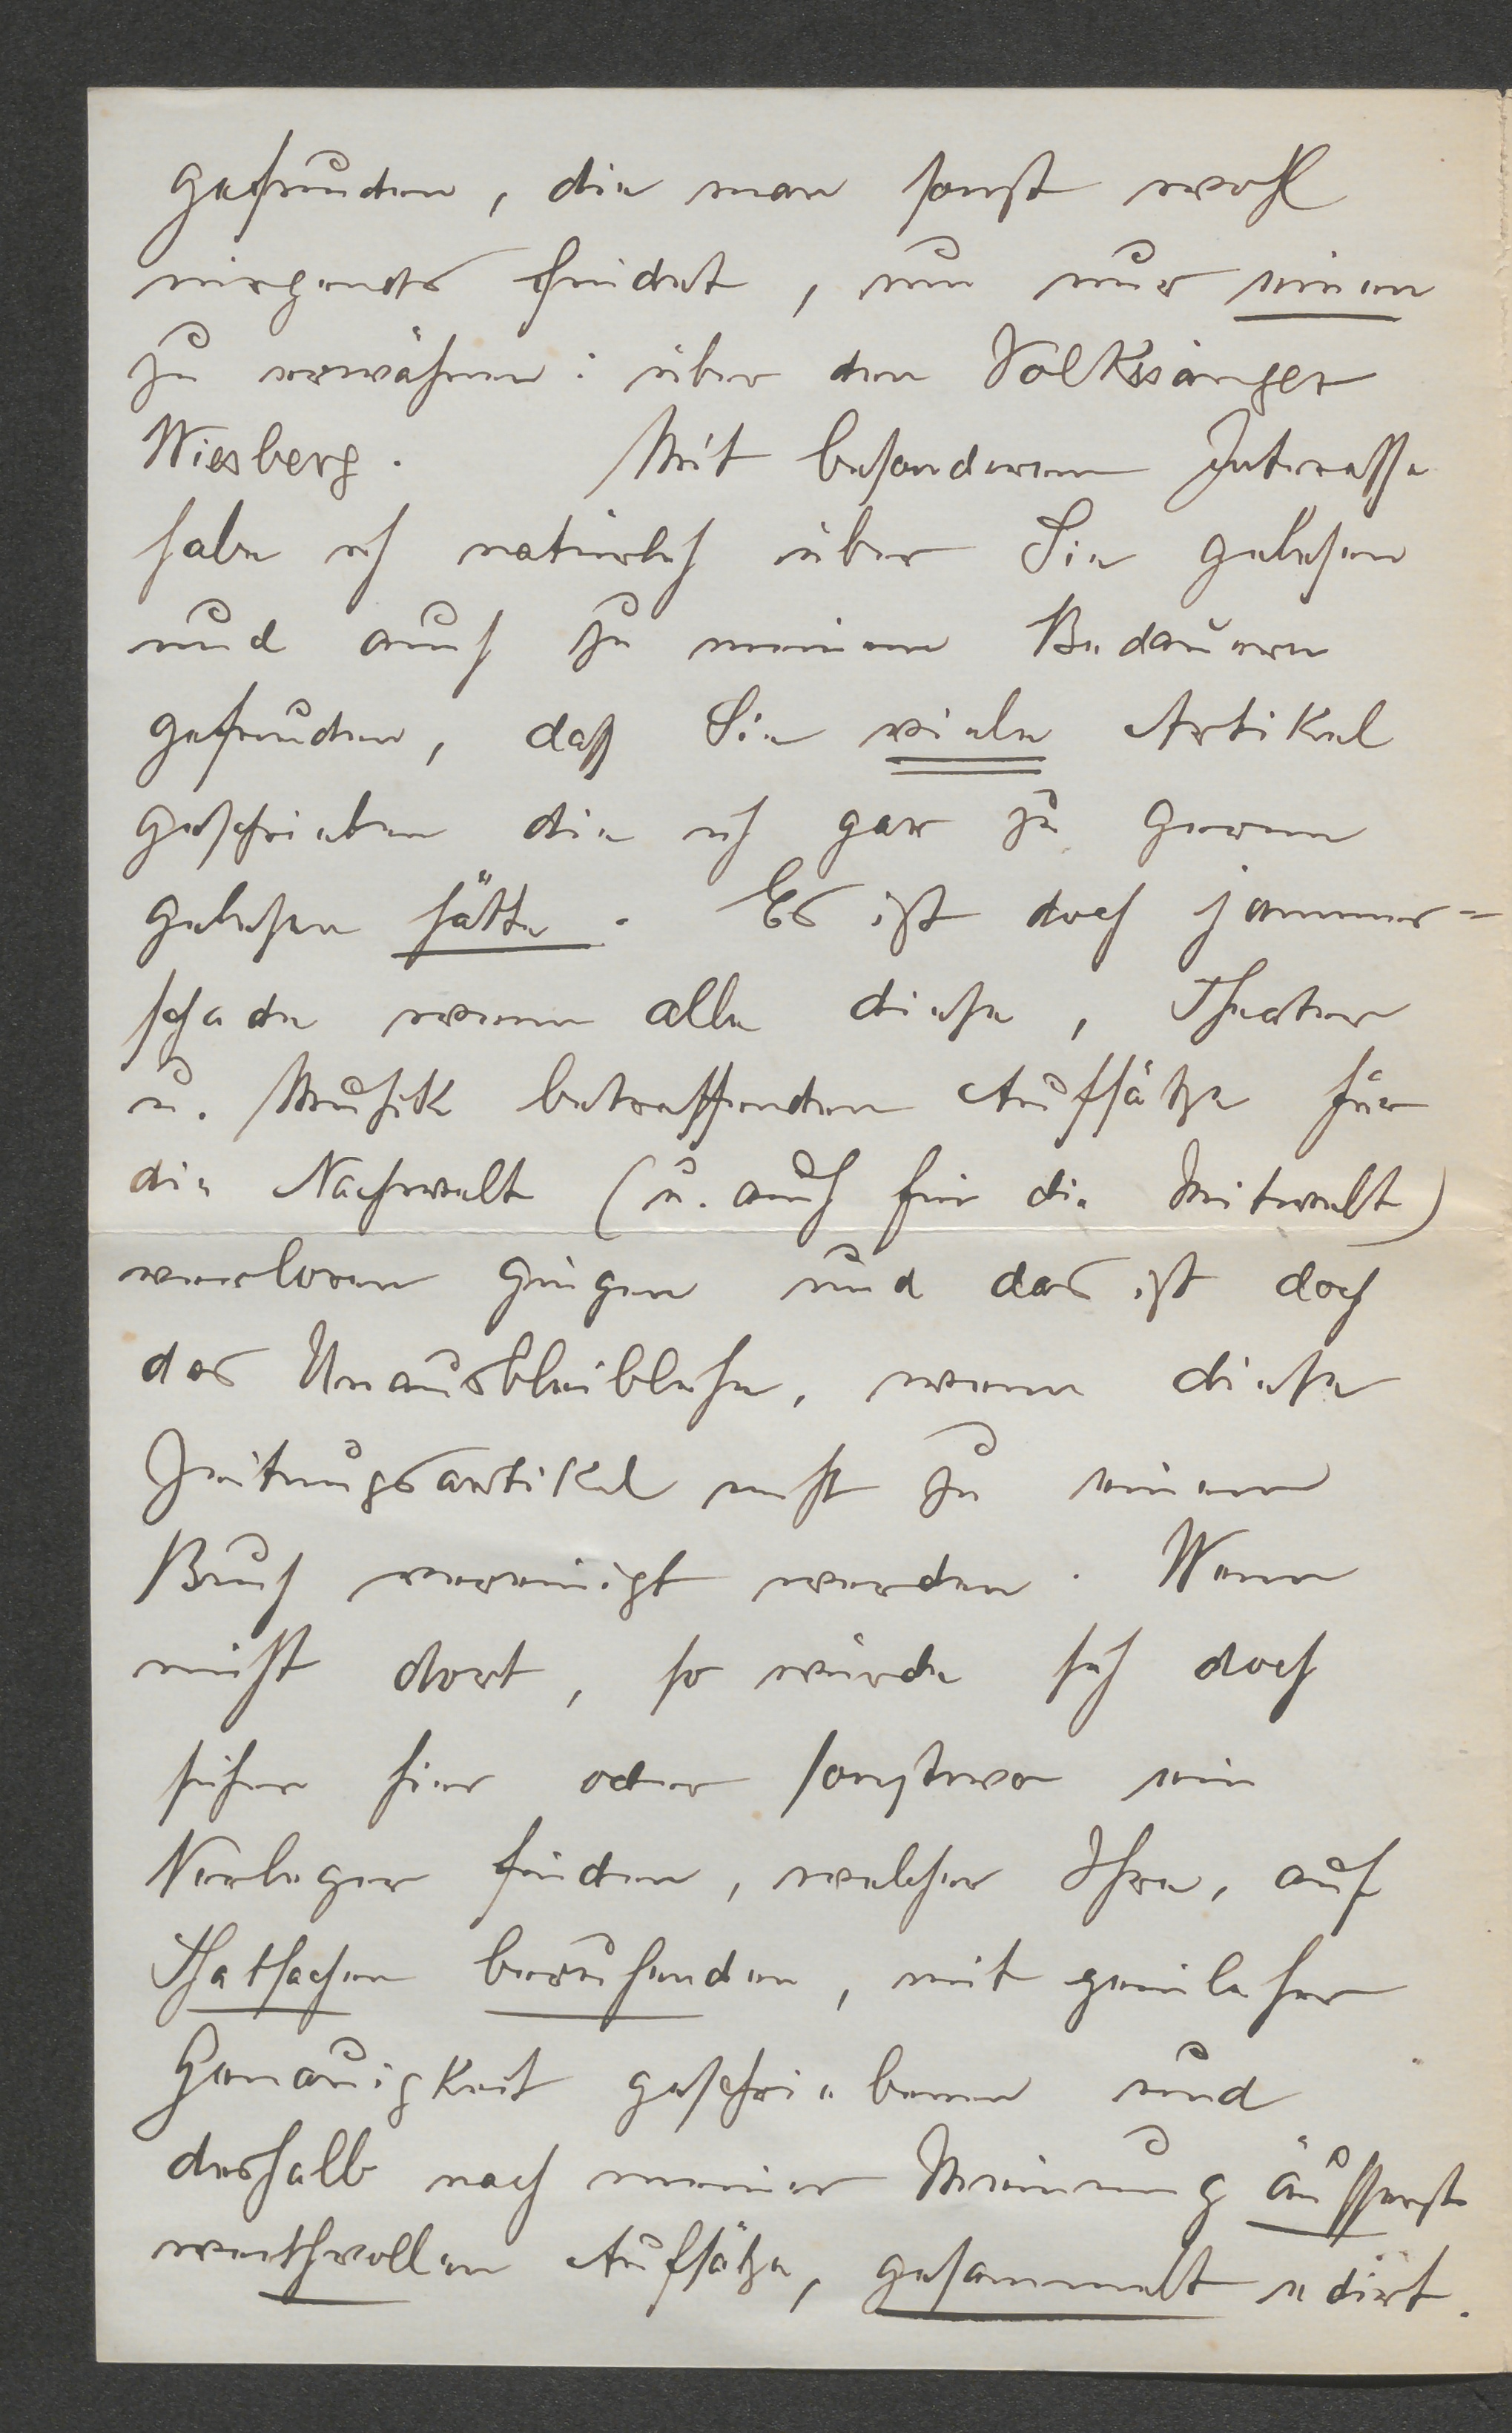 gefunden, die man sonst wohl
nirgends findet, um nur einen
zu erwähnen: über den Volkssänger
Wiesberg. Mit besonderem Interesse
habe ich natürlich über Sie gelesen
und auch zu meinem Bedauern
gefunden, daß Sie viele Artikel
geschrieben die ich gar zu gerne
gelesen hätte. Es ist doch jammer=
schade wenn alle diese, Theater
u. Musik betreffenden Aufsätze für
die Nachwelt (u. auch für die Mitwelt)
verloren gingen und das ist doch
das Unausbleibliche, wenn diese
Zeitungsartikel nicht zu einem
Buch vereinigt werden. Wenn
nicht dort, so würde sich doch
sicher hier oder sonstwo ein
Verleger finden, welcher Ihre, auf
Thatsachen beruhenden, mit peinlicher
Genauigkeit geschriebenen und
deshalb nach meiner Meinung äußerst
werthvollen Aufsätze, gesammelt edirt.